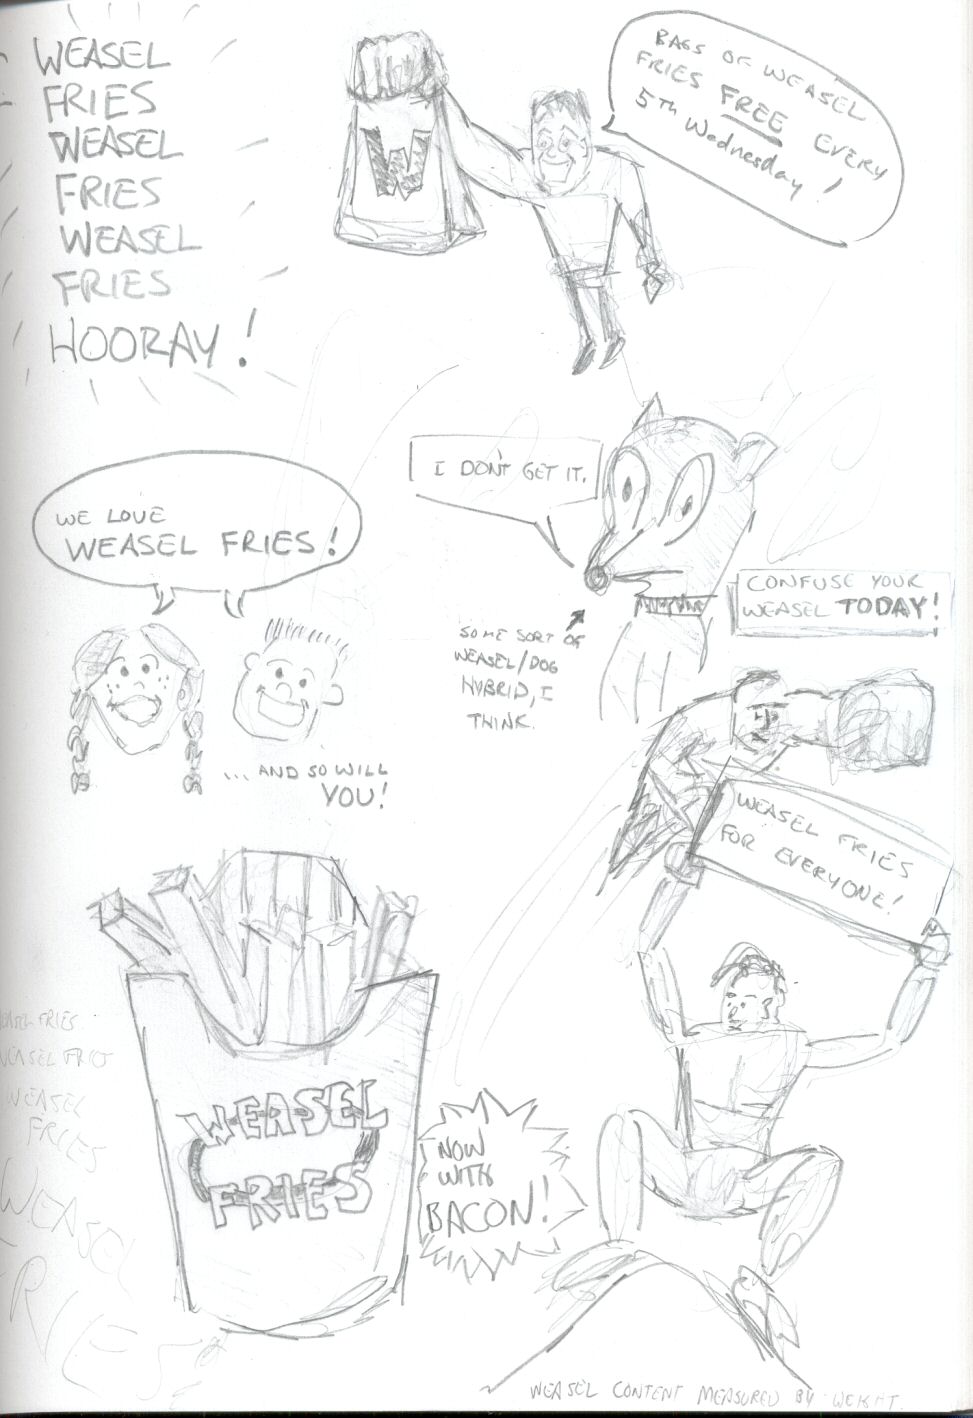 WEASEL
FRIES
WEASEL
FRIES
WEASEL
FRIES
HOORAY!
BAGS OF WEASEL
FRIES FREE EVERY
5TH Wednesday!
W
I DON'T GET IT.
WE LOVE
WEASEL FRIES!
CONFUSE YOUR
WEASEL TODAY!
SOME SORT OF
WEASEL/DOG
HYBRID, I
THINK.
...AND SO WILL
YOU!
WEASEL FRIES
FOR EVERYONE!
WEASEL FRIES
WEASEL FRIES
WEASEL
FRIES
WEASEL
FRIES
WEASEL
FRIES
NOW
WITH
BACON!
WEASEL CONTENT MEASURED BY WEIGHT.